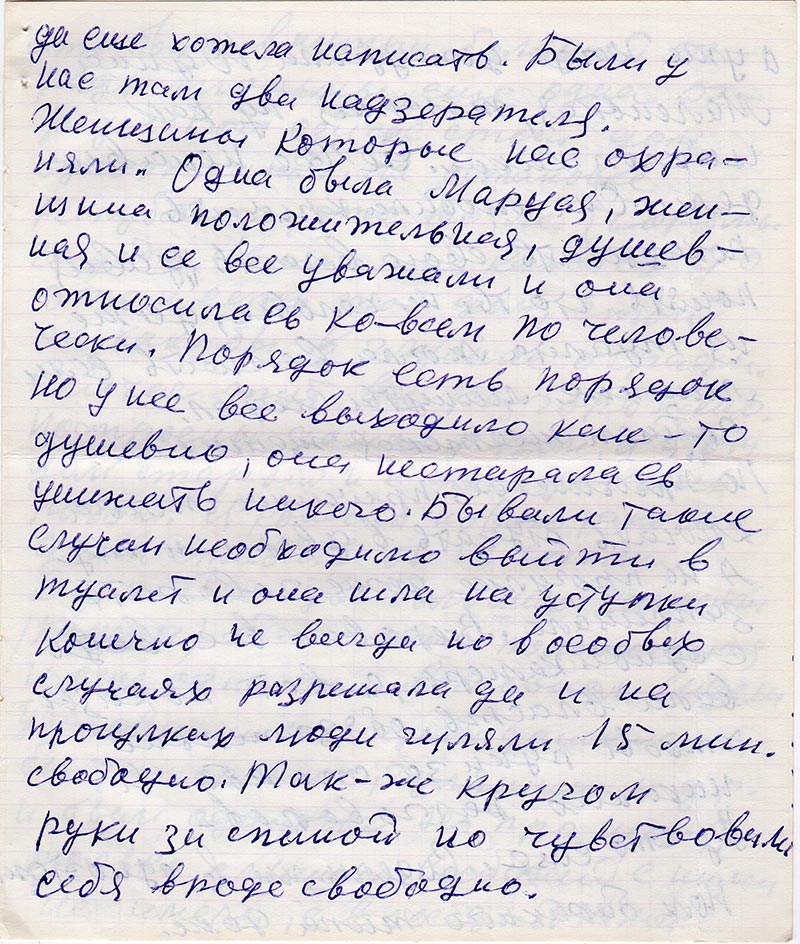 да еще хотела написать. Были у
нас там два надзерателя.
Женщины которые нас охра-
няли.. Одна была Маруся, жен-
щина положительная, душев-
ная и ее все уважали и она
относилась ко-всем по челове-
чески. Порядок есть порядок
но у нее все выходило как-то
душевно, она нестаралась
унижать никого. Бывали такие
случаи необходимо выйти в
туалет и она шла на уступки
Конечно не всегда но в особых
случаях разрешала да и на
прогулках люди гуляли 15 мин.
свободно. Так-же кругом
руки за спиной но чувствовали
себя вроде свободно.